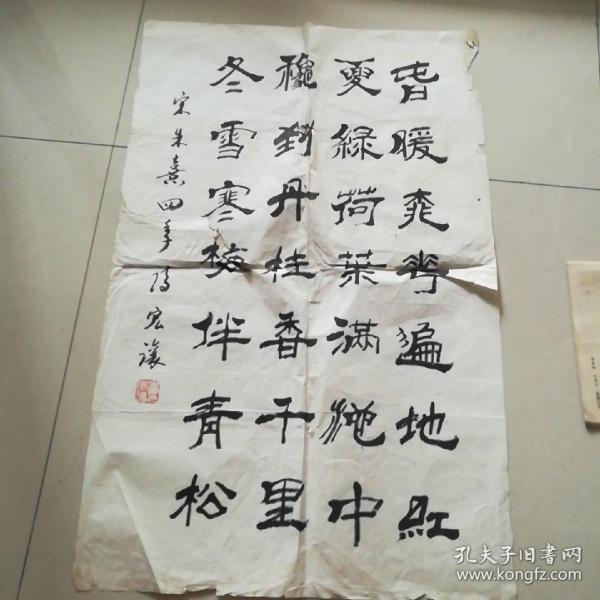 春暖桃花遍地紅
夏綠荷葉滿池中
穐到丹桂香千里
冬雪寒梅伴青松
宋朱熹四季詩宏讓
孔夫子旧书网
www.kongfz.com